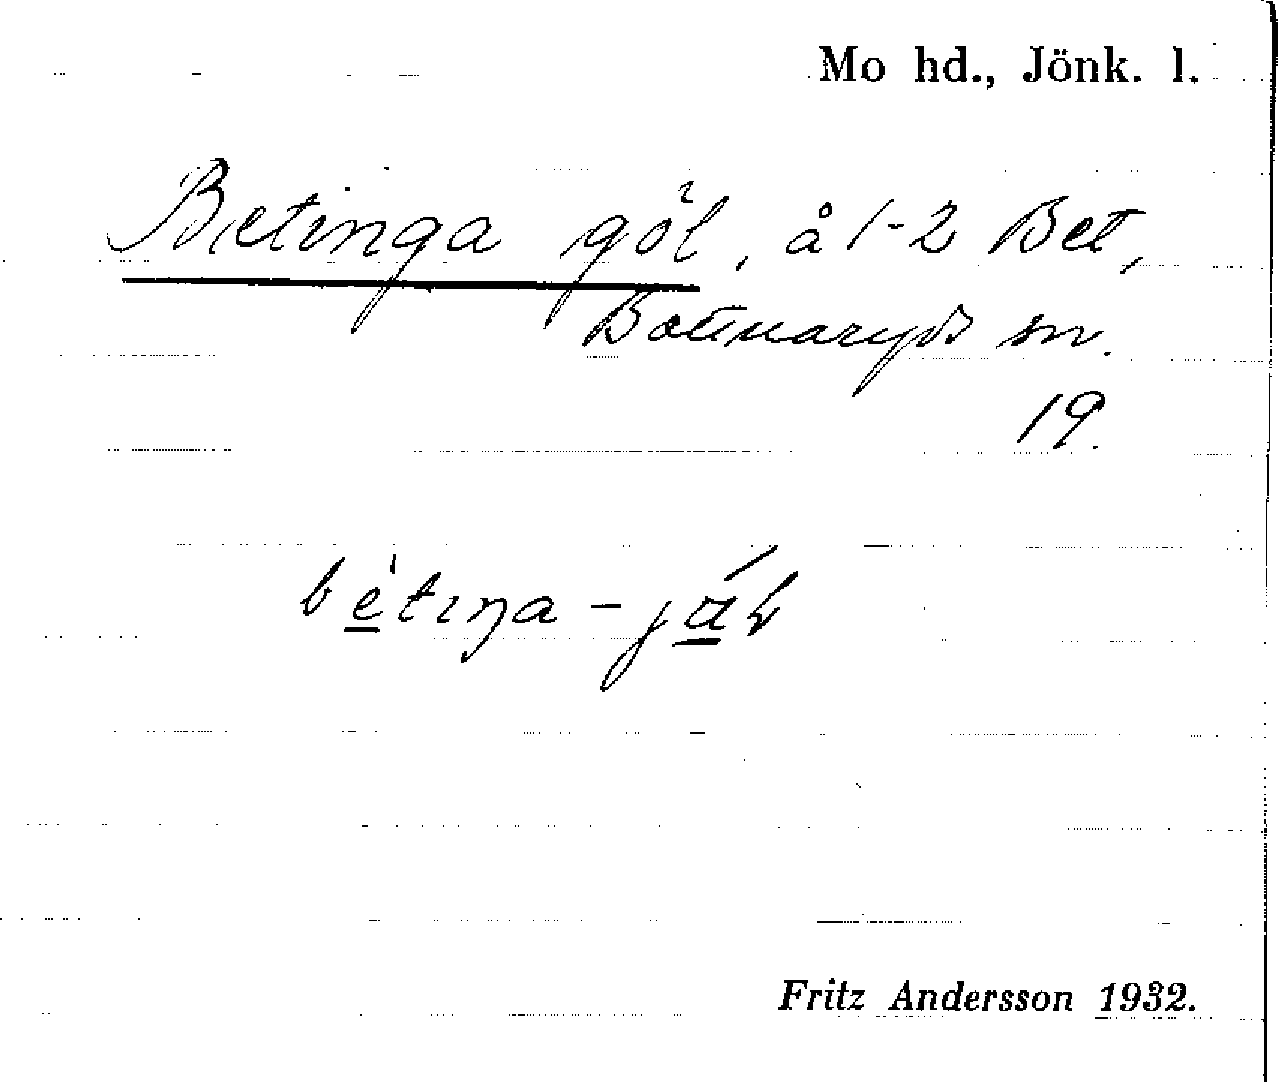 Mo hd., Jönk. l.
Betinga göl, å 1-2 Bet,
Bottnaryds sn.
19.
Fritz Andersson 1932.